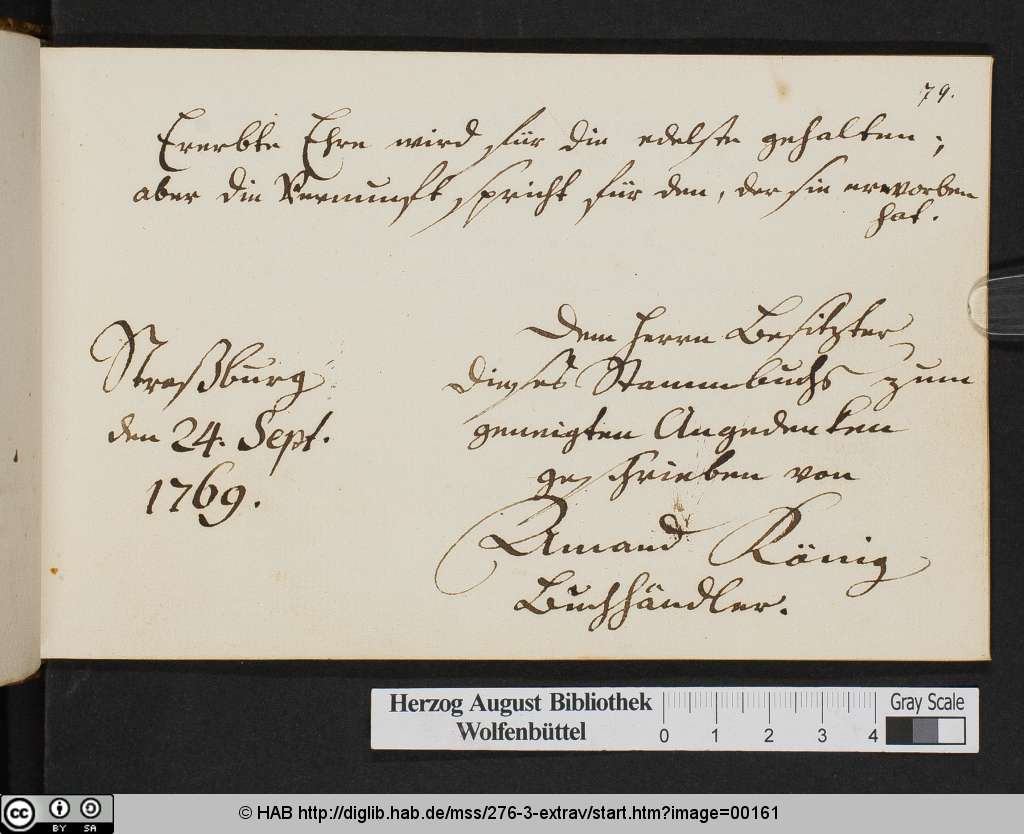 79.
Ererbte Ehre wird für die edelste gehalten;
aber die Vernunft spricht für den, der sie erworben
hat.
Straßburg
den 24. Sept.
1769.
Dem Herrn Besitzter
dieses Stammbuchs zum
geneigten Angedenken
geschrieben von
Amand König
Buchhändler.
Herzog August Bibliothek
Wolfenbüttel
0 1 2 3 4
Gray Scale
cc BY SA
© HAB http://diglib.hab.de/mss/276-3-extrav/start.htm?image=00161